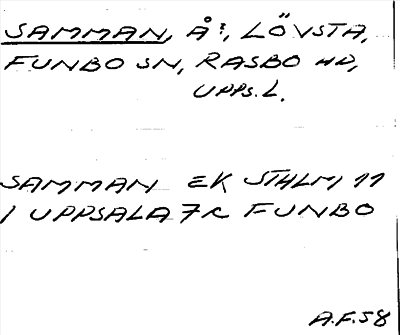 SAMMAN, Å?, LÖVSTA,
FUNBO SN, RASBO HD,
UPPS. L.
SAMMAN EK STHLM 11
I UPPSALA 7C FUNBO
A.F.58